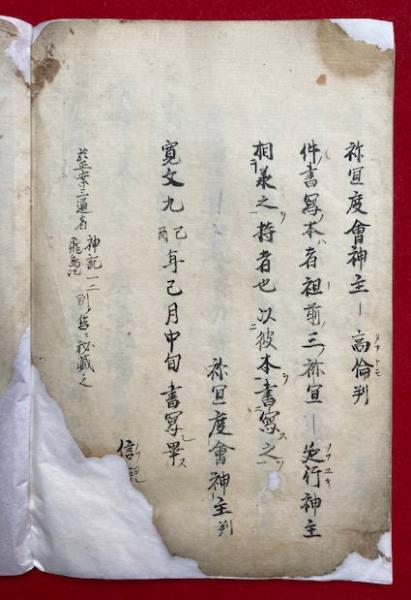 祢宜度會神主ー高倫判
件書写本者祖前三祢宜ー延行神主
相承之持者也以彼本書写之
祢宜度會神主判
寛文九己酉年己月中旬書写畢
信
於正案三通者神記一二別焉秘蔵之
飛鳥記